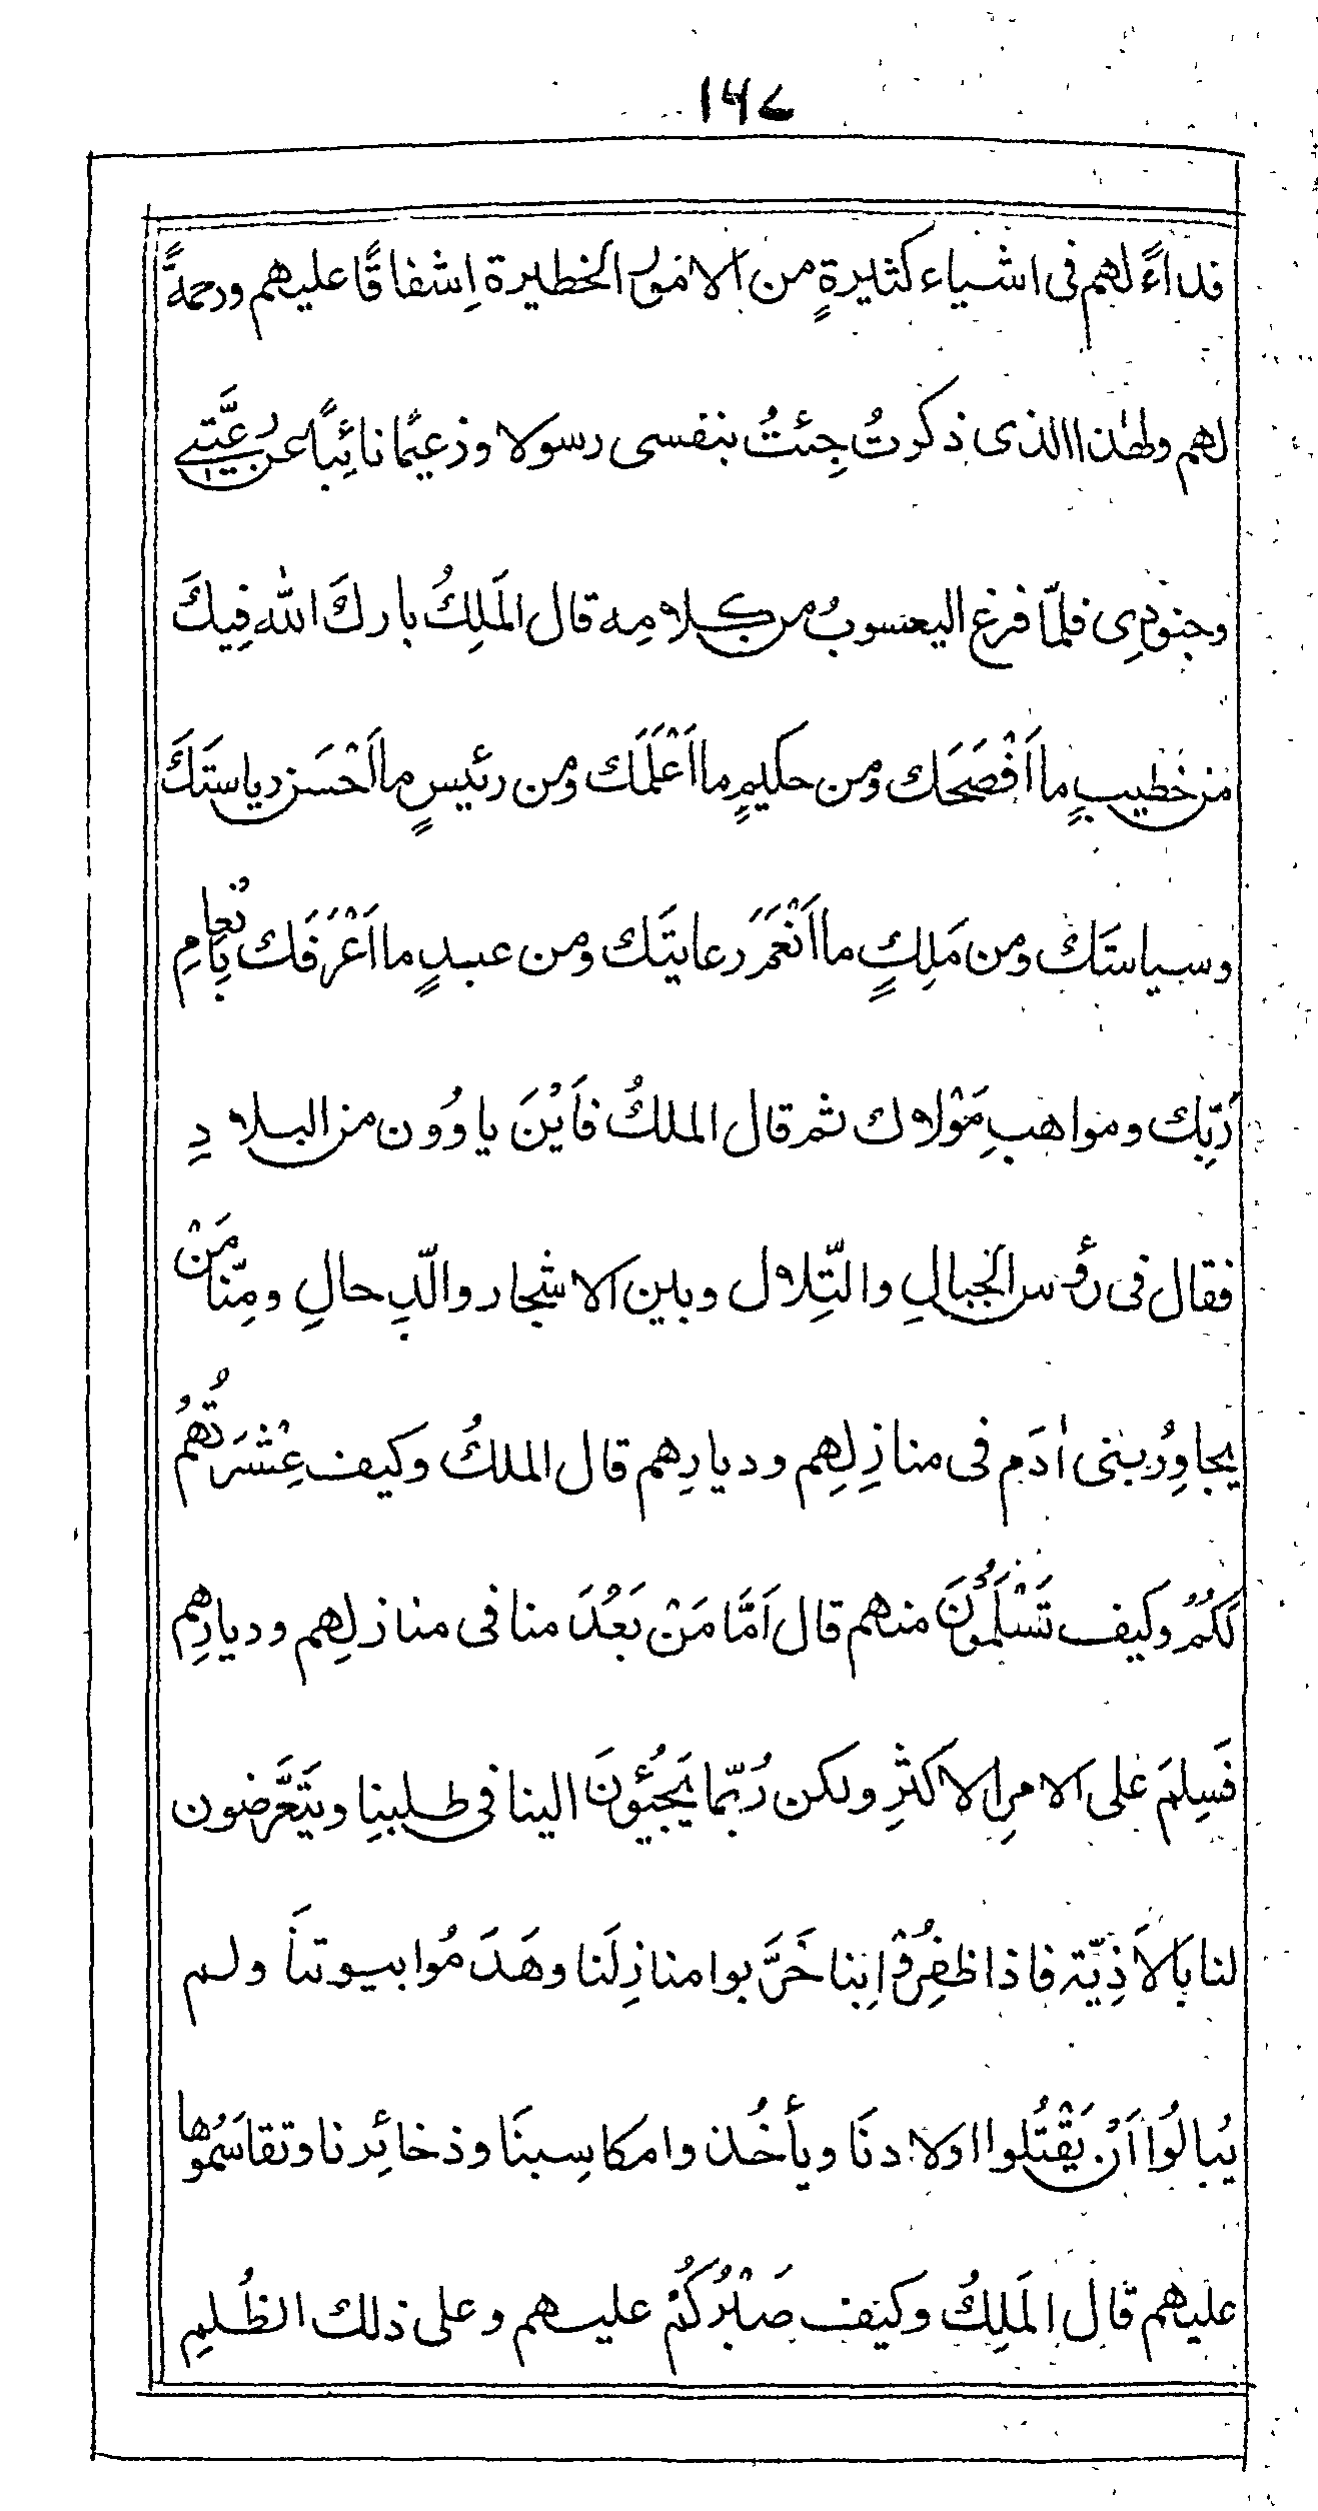 ١٦٧
فداءً لهم فى اشياء كثيرةٍ من الامور الخطيرة اِشفاقًا عليهم ورحمةً
لهم ولهٰذا الذى ذكرتُ جِئتُ بنفسى رسولا وزعيمًا نائِبًا عن رعيَّتى
وجنودِى فلمّا فرغ اليعسوبُ من كلامِه قال المَلِكُ بارك الله فِيكَ
من خَطيبٍ ما اَفْصَحَك ومن حكيمٍ ما اَعْلَمَك ومن رئيسٍ ما اَحْسَن رياستَكَ
وسياستَك ومن مَلِكٍ ما اَنْعَمَ رعايتَك ومن عبدٍ ما اَعْرَفَك بِاِنعامِ
رَبِّك ومواهبِ مَوْلاك ثم قال الملكُ فاَيْنَ ياوُون من البلادِ
فقال فى رؤس الجبالِ والتِّلال وبين الاشجار والدِّحالِ ومِنّا مَنْ
يجاوِرُ بنى اٰدَم فى منازِلِهِم وديارِهم قال الملكُ وكيف عِشْرَتُهُمْ
لَكُمْ وكيف تَسْلَمُونَ منهم قال اَمَّا مَنْ بَعُدَ منا فى منازلِهم وديارِهم
فَسِلمَ على الامرِ الاكثرِ ولكن رُبّما يَجِئُونَ الينا فى طلبِنا ويَتَعَرَّضون
لنا بالاَذِيّة فاذا ظفِرُوْا بِنا خَرَّبوا منازِلَنا وهَدَمُوا بيوتنَا ولم
يُبالُوا اَنْ يَقْتُلوا اولادنَا ويأخُذوا مكاسِبنَا وذخائِرنا وتقاسَمُوها
عليهم قال المَلِكُ وكيف صَبْرُكُمْ عليهم وعلى ذلك الظُلمِ